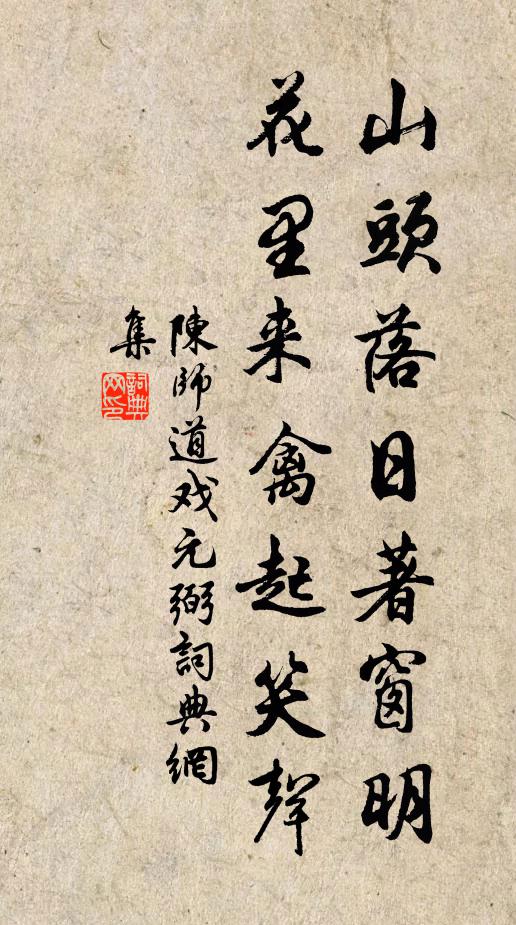 山頭落日著窗明
花里来禽起笑聲
陳師道戏元弼詞典網
集
詞典網印